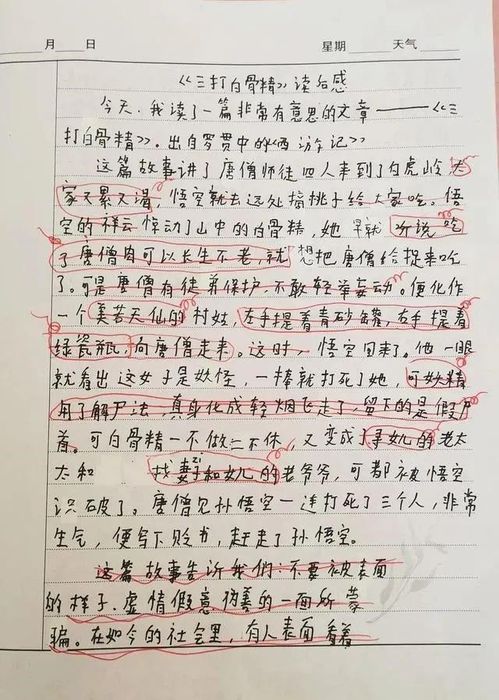 月 日 星期 天气
《三打白骨精》读后感
今天,我读了一篇非常有意思的文章——《三
打白骨精》.出自罗贯中的《西游记》
这篇故事讲了唐僧师徒四人来到了白虎岭大
家又累又渴,悟空就去远处摘桃子给大家吃。悟
空的祥云惊动了山中的白骨精,她早就听说吃
了唐僧肉可以长生不老,就想把唐僧给捉来吃
了。可是唐僧有徒弟保护,不敢轻举妄动。便化作
一个美若天仙的村姑,左手提着青砂罐,右手提着
绿瓷瓶,向唐僧走来。这时,悟空回来了。他一眼
就看出这女子是妖怪,一棒就打死了她,可妖精
用了解尸法,真身化成轻烟飞走了,留下的是假尸
首。可白骨精一不做二不休,又变成了寻女儿的老太
太和 找妻子和女儿的老爷爷,可都被悟空
识破了。唐僧见孙悟空一连打死了三个人,非常
生气,便写下贬书,赶走了孙悟空。
这篇故事告诉我们:不要被表面
的样子.虚情假意.伪善的一面所蒙
骗。在如今的社会里,有人表面看着